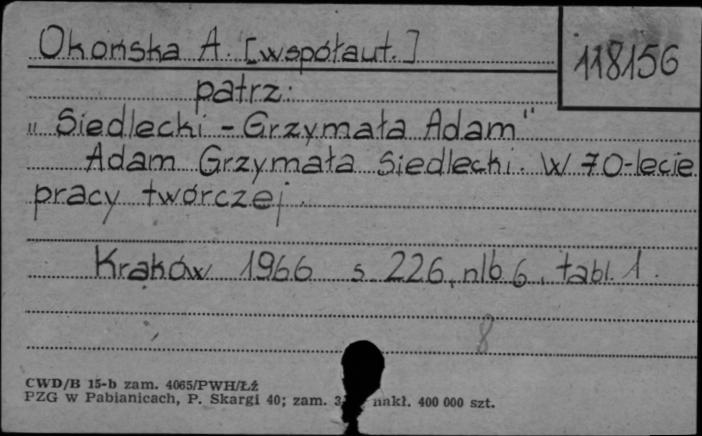 Okońska A. [współaut.]
118156
patrz:
"Siedlecki - Grzymała Adam"
Adam Grzymała Siedlecki. W 70-lecie
pracy twórczej.
Kraków 1966 s. 226, nlb 6, tabl. 1.
8
CWD/B 15-b zam. 4065/PWH/Łź
PZG w Pabianicach, P. Skargi 40; zam. nakł. 400 000 szt.